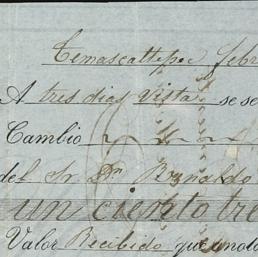 Temascaltepec febr
A tres dias vista se se
Cambio
del Sr. Dn. Reynaldo
un ciento tre
Valor Recibido que anota